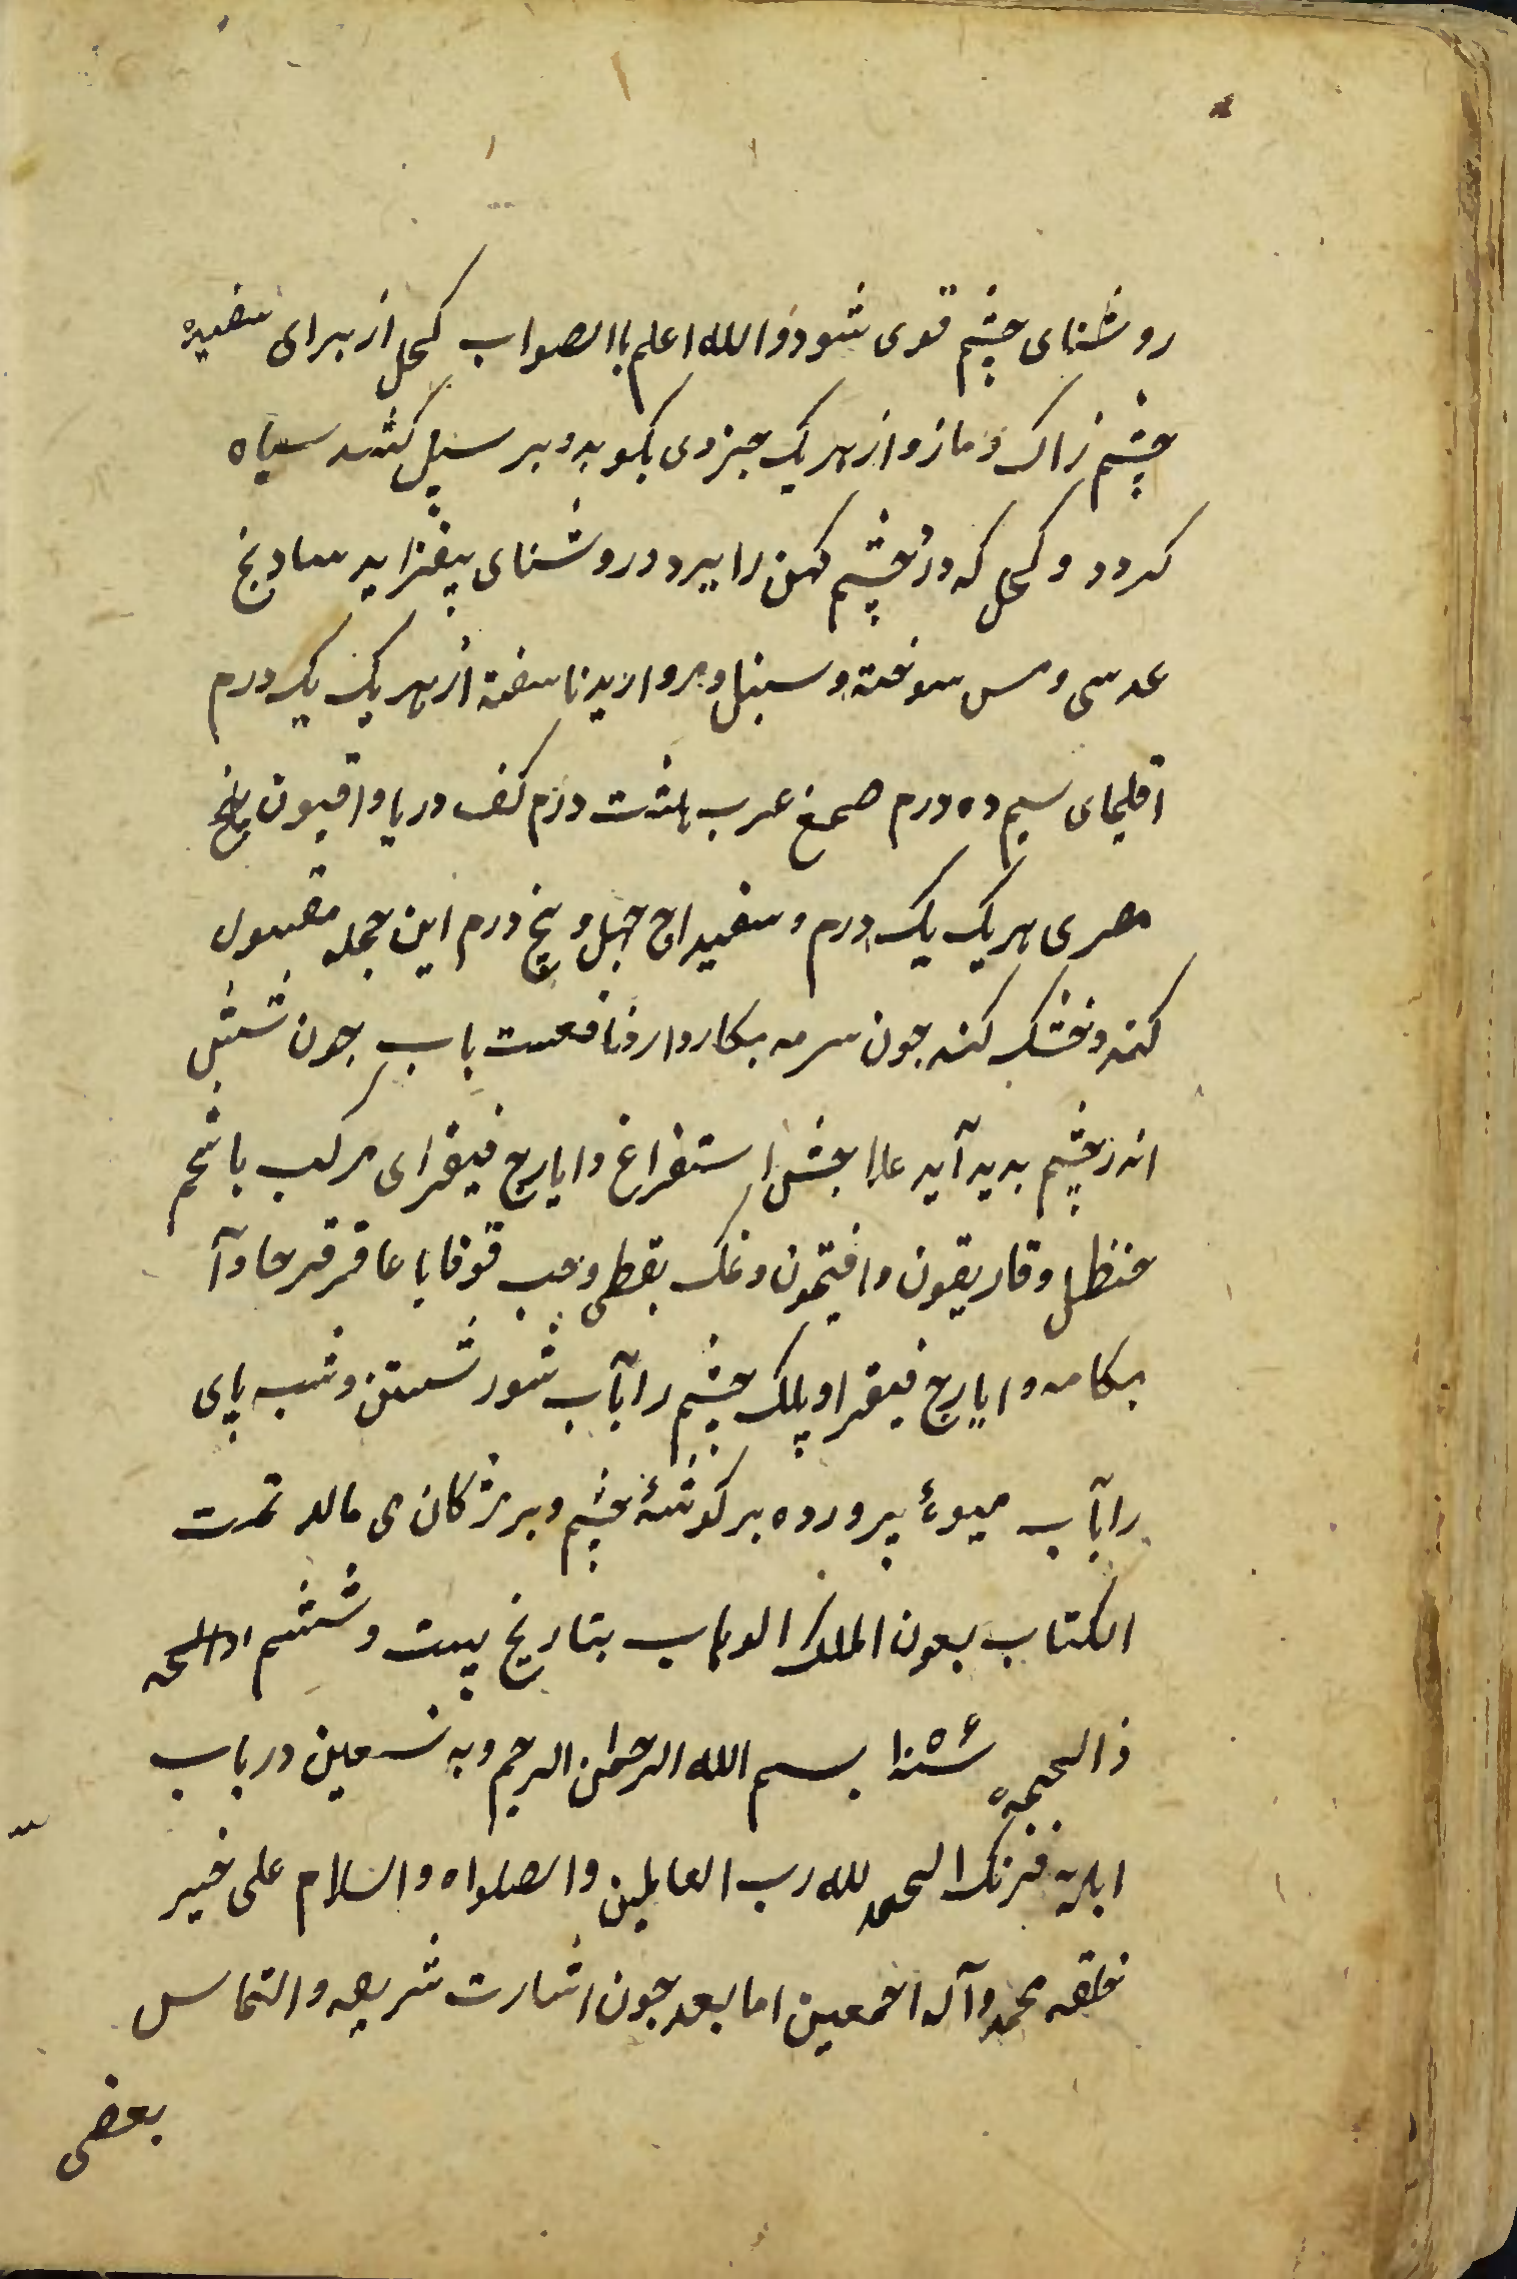 روشنای چشم قوی شود والله اعلم باالصواب کحل از برای سفیده
چشم زاک و مازو از هر یک جزوی بکوبد و بر سبل کشد سیاه
کردد و کحل که درد چشم کهن را ببرد و روشنای بیفزاید سادنج
عدسی و مس سوخته و سنبل و مروارید ناسفته از هر یک یک درم
اقلیمای سیم ده درم صمغ عرب هشت درم کف دریا و افیون
مصری هر یک یک درم و سفیداج چهل و پنج درم این جمله مغسول
کند و خشک کند چون سرمه بکار دارد نافعست باب چون شپش
اندر چشم بدید آید علاجش استفراغ و ایارج فیقرای مرکب باشحم
حنظل و قاریقون و افتیمون و نمک بقطی و حب قوقایا عاقرقرحا و آ
بکامه و ایارج فیقرا و پلک چشم را بآب شور شستن و شب یای
را بآب میوۀ پرورده بر کوشۀ چشم و بر مژکان می مالد تمت
الکتاب بعون الملک الوهاب بتاریخ بیست و ششم
ذالحجه سنه بسم الله الرحمن الرحیم و به نستعین در باب
ابلۀ فرنک الحمد لله رب العالمین و الصلواه و السلام علی خیر
خلقه محمد و آله اجمعین اما بعد چون اشارت شریعه و التماس
بعضی